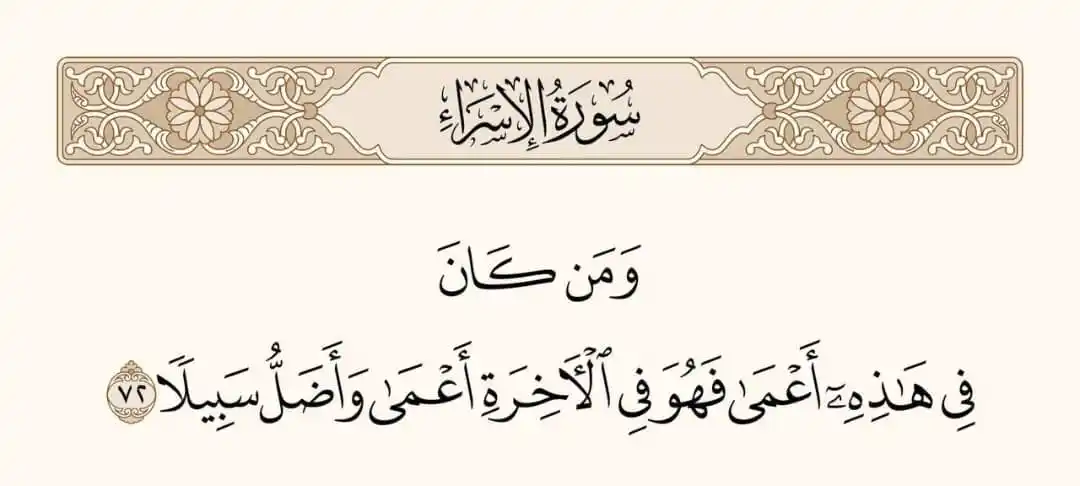 سُورَةُ الإِسْرَاءِ
وَمَن كَانَ
فِي هَٰذِهِۦٓ أَعْمَىٰ فَهُوَ فِي ٱلْأٓخِرَةِ أَعْمَىٰ وَأَضَلُّ سَبِيلًا ٧٢